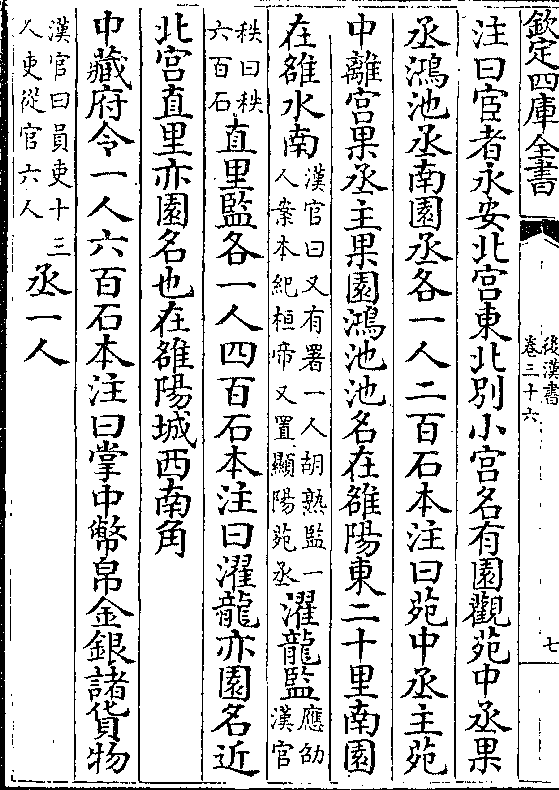 欽定四庫全書
後漢書
卷三十六
七
注曰宦者永安北宮東北別小宮名有園觀苑中丞果
丞鴻池丞南園丞各一人二百石本注曰苑中丞主苑
中離宮果丞主果園鴻池池名在雒陽東二十里南園
在雒水南漢官曰又有署一人胡熟監一人案本紀桓帝又置顯陽苑丞濯龍監應劭漢官
秩曰秩六百石直里監各一人四百石本注曰濯龍亦園名近
北宮直里亦園名也在雒陽城西南角
中藏府令一人六百石本注曰掌中幣帛金銀諸貨物
漢官曰員吏十三人吏從官六人丞一人